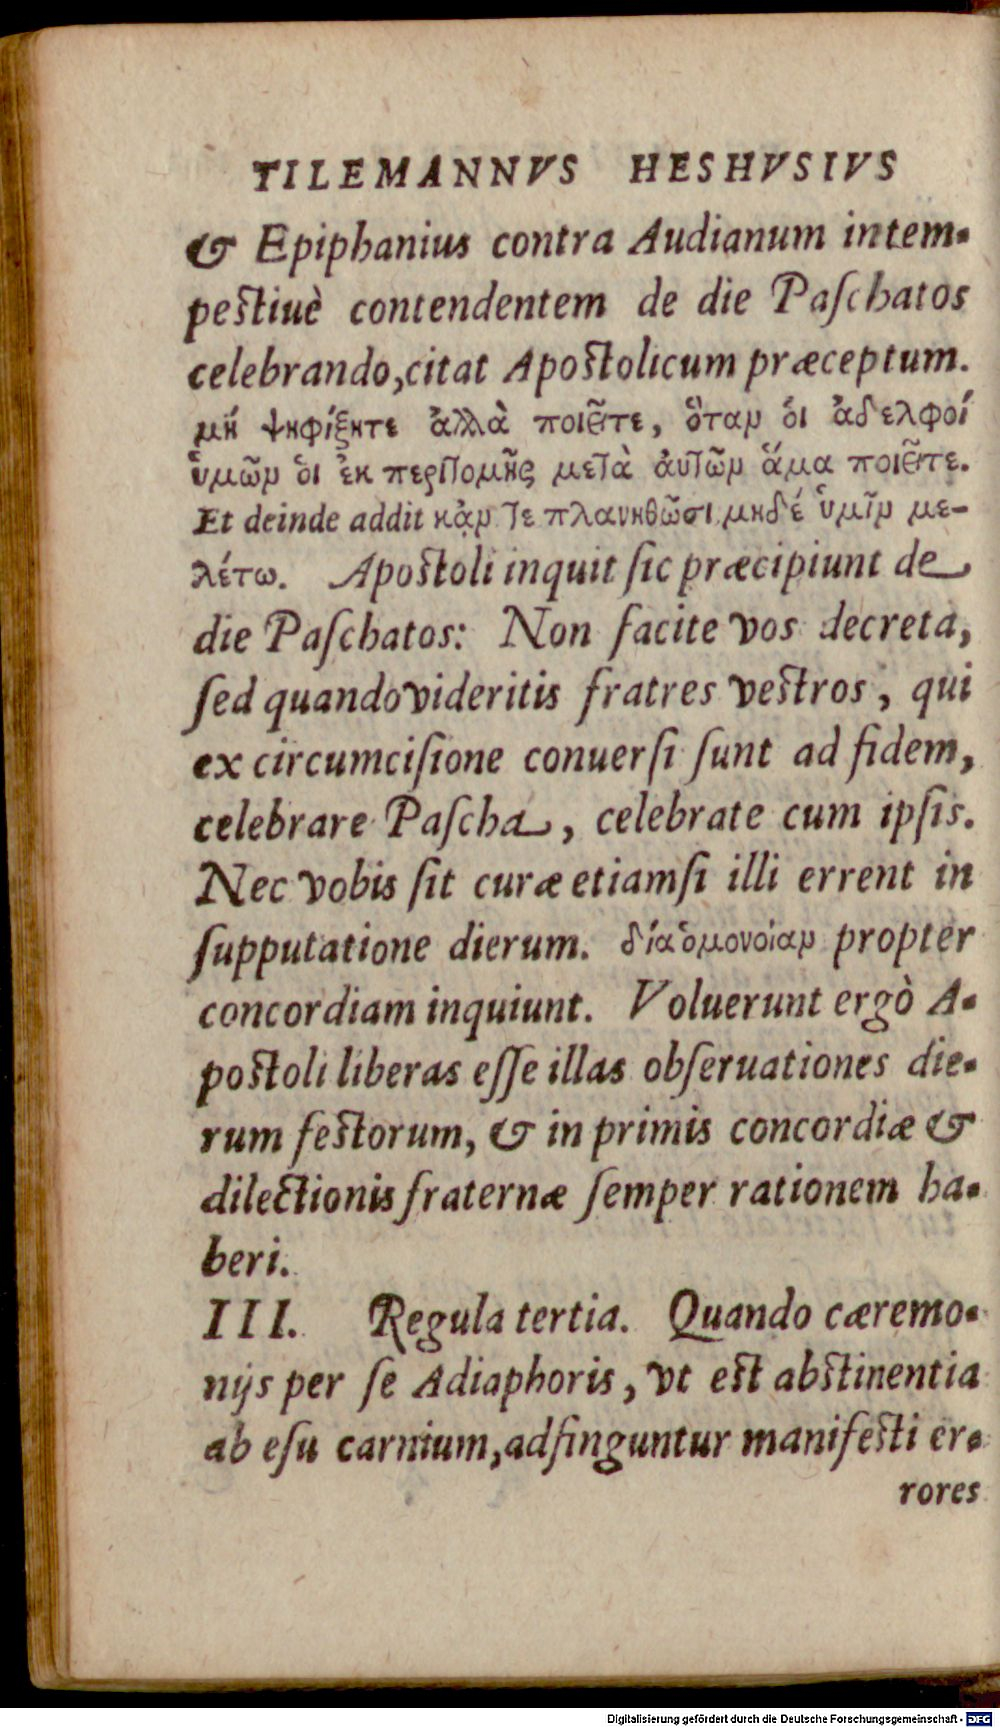 TILEMANNVS HESHVSIVS
& Epiphanius contra Audianum intem-
pestiuè contendentem de die Paſchatos
celebrando, citat Apostolicum præceptum.
μή ψηφίξητε ἀλλὰ ποιεῖτε, ὅταν ὁι ἀδελφοί
ὑμῶν ὁι ἐκ περιτομῆς μετὰ ἀυτῶν ἅμα ποιεῖτε.
Et deinde addit κἄν τε πλανηθῶσι μηδέ ὑμῖν με-
λέτω. Apostoli inquit ſic præcipiunt de
die Paſchatos: Non facite vos decreta,
ſed quando videritis fratres vestros, qui
ex circumciſione conuerſi ſunt ad fidem,
celebrare Paſcha, celebrate cum ipſis.
Nec vobis ſit curæ etiamſi illi errent in
ſupputatione dierum. δίαὁμονοίαν propter
concordiam inquiunt. Voluerunt ergò A-
postoli liberas eſſe illas obſeruationes die-
rum festorum, & in primis concordiæ &
dilectionis fraternæ ſemper rationem ha-
beri.
III. Regula tertia. Quando cæremo-
nijs per ſe Adiaphoris, vt est abstinentia
ab eſu carnium, adfinguntur manifesti er-
rores
Digitalisierung gefördert durch die Deutsche Forschungsgemeinschaft - DFG